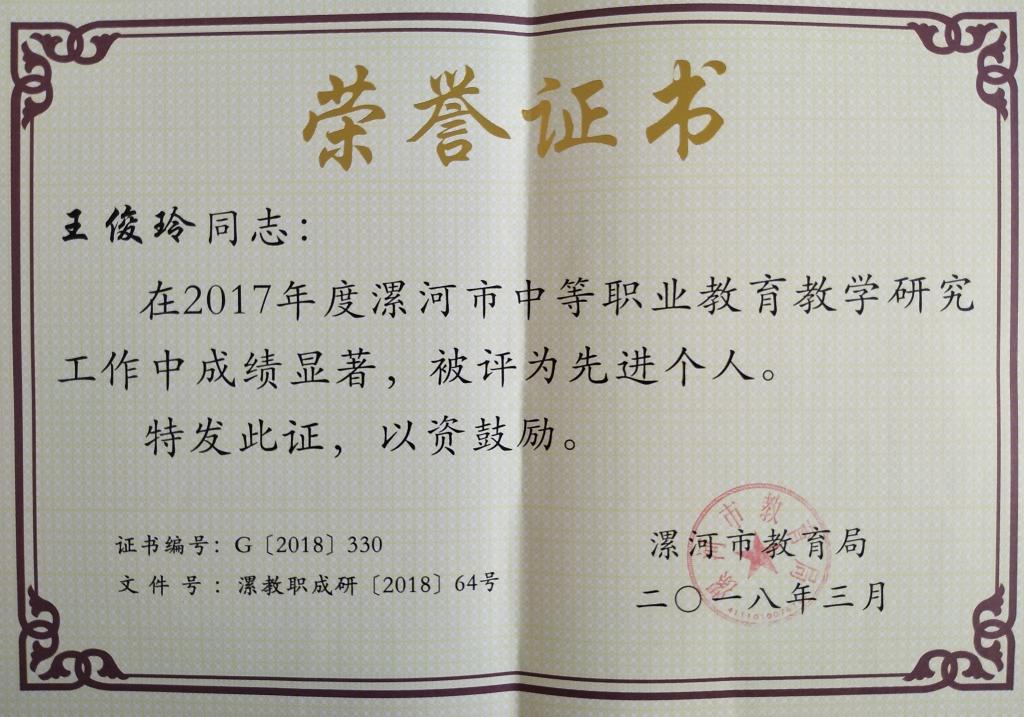 荣誉证书
王俊玲同志：
在2017年度漯河市中等职业教育教学研究
工作中成绩显著，被评为先进个人。
特发此证，以资鼓励。
证书编号：G〔2018〕330
文件号：漯教职成研〔2018〕64号
漯河市教育局
二〇一八年三月
漯河市教育局